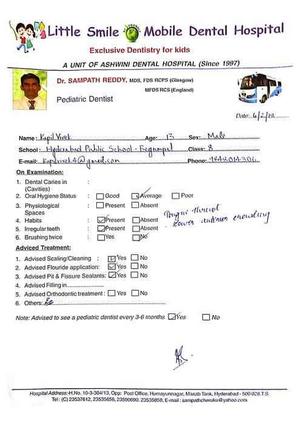 Little Smile Mobile Dental Hospital
Exclusive Dentistry for kids
A UNIT OF ASHWINI DENTAL HOSPITAL (Since 1997)
Dr. SAMPATH REDDY, MDS, FDS RCPS (Glasgow)
MFDS RCS (England)
Pediatric Dentist
Date: 6/2/
Name: Kapil Vivek Age: 13 Sex: Male
School: Hyderabad Public School - Begumpet Class: 8
E-mail: Phone:
On Examination:
1. Dental Caries in (Cavities)
2. Oral Hygiene Status Good Average Poor
3. Physiological Spaces Present Absent
4. Habits Present Absent Tongue thrust
5. Irregular teeth Present Absent lower anteriors crowding
6. Brushing twice Yes No
Adviced Treatment:
1. Advised Scaling/Cleaning : Yes No
2. Advised Flouride application: Yes No
3. Advised Pit & Fissure Sealants: Yes No
4. Advised Filling in
5. Advised Orthodontic treatment : Yes No
6. Others:
Note: Advised to see a pediatric dentist every 3-6 months Yes No
Hospital Address: H.No. 10-3-304/13, Opp: Post Office, Humayunnagar, Masab Tank, Hyderabad - 500 028 T.S.
Tel: (C) 23537612, 23535658, 23590690, 23535858, E-mail :